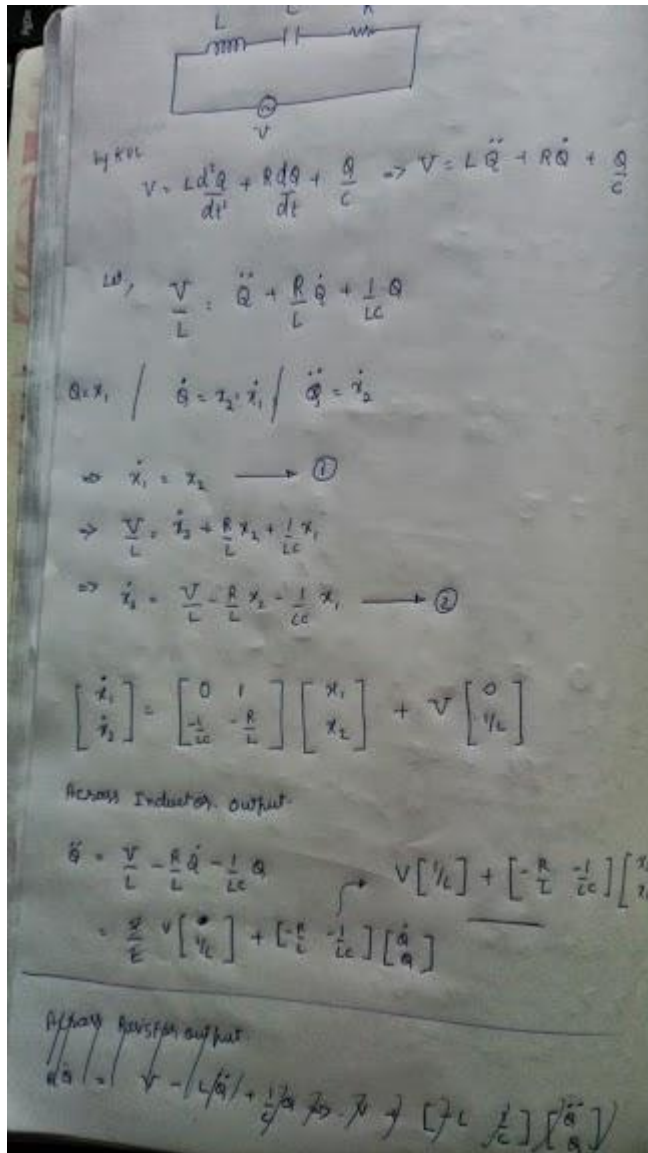 L C R
V
by KVL
V = L d²Q/dt² + R dQ/dt + Q/C => V = L Q̈ + R Q̇ + Q/C
Let, V/L = Q̈ + R/L Q̇ + 1/LC Q
Q = x₁ / Q̇ = x₂ = ẋ₁ / Q̈ = ẋ₂
=> ẋ₁ = x₂ → ①
=> V/L = ẋ₂ + R/L x₂ + 1/LC x₁
=> ẋ₂ = V/L - R/L x₂ - 1/LC x₁ → ②
[ẋ₁ ẋ₂] = [0 1 -1/LC -R/L] [x₁ x₂] + V [0 1/L]
Across Inductor output.
Q̈ = V/L - R/L Q̇ - 1/LC Q
→ V[1/L] + [-R/L -1/LC]
= V[1/L] + [-R/L -1/LC] [Q̇ Q]
Across Resistor output
RQ̇ = V - LQ̈ + 1/C